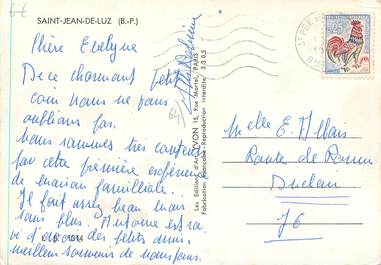 6€
SAINT-JEAN-DE-LUZ (B.-P.)
Chère Evelyne
De ce charmant petit
coin nous ne vous
oublions pas.
Nous sommes très contents
par cette première expérience
de maison familiale.
Il fait assez beau mais
sans plus. Antoine est ra-
vi d'avoir des petits amis.
meilleurs souvenirs de nous tous.
64
Les Editions d'Art YVON 15, Rue Martel, PARIS
Fabrication Française - Reproduction interdite
Melle E. Villars
Route de Rouen
Duclair
76